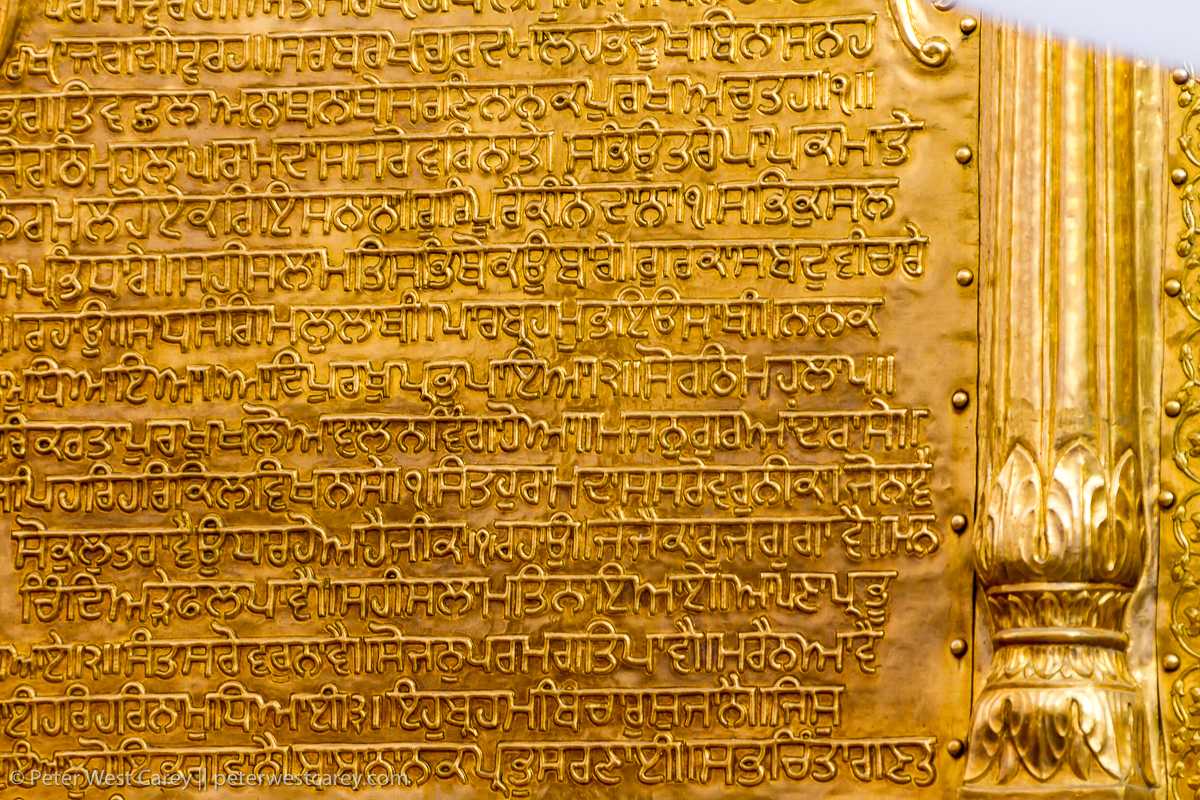 ਜਗਦੀਸ੍ਵਰਹ ॥
ਵਛਲ ਅਨਾਥ ਨਾਥੇ ਸਰਣਿ ਨਾਨਕ ਪੁਰਖ ਅਚੁਤਹ ॥੧॥
ਸੋਰਠਿ ਮਹਲਾ ੫ ਰਾਮਦਾਸ ਸਰੋਵਰਿ ਨਾਤੇ ॥ ਸਭਿ ਉਤਰੇ ਪਾਪ ਕਮਾਤੇ
ਨਿਰਮਲ ਹੋਏ ਕਰਿ ਇਸਨਾਨਾ ॥ ਗੁਰਿ ਪੂਰੈ ਕੀਨੇ ਦਾਨਾ ॥੧॥ ਸਭਿ ਕੁਸਲ
ਖੇਮ ਪ੍ਰਭਿ ਧਾਰੇ ॥ ਸਹੀ ਸਲਾਮਤਿ ਸਭਿ ਥੋਕ ਉਬਾਰੇ ਗੁਰ ਕਾ ਸਬਦੁ ਵੀਚਾਰੇ
ਰਹਾਉ ॥ ਸਾਧਸੰਗਿ ਮਲੁ ਲਾਥੀ ॥ ਪਾਰਬ੍ਰਹਮੁ ਭਇਓ ਸਾਥੀ ॥ ਨਾਨਕ
ਨਾਮੁ ਧਿਆਇਆ ॥ ਆਦਿ ਪੁਰਖ ਪ੍ਰਭੁ ਪਾਇਆ ॥੨॥ ਸੋਰਠਿ ਮਹਲਾ ੫ ॥
ਕਰਤਾ ਪੁਰਖੁ ਖਲੋਆ ॥ ਵਾਲੁ ਨ ਵਿੰਗਾ ਹੋਆ ॥ ਮਜਨੁ ਗੁਰ ਆਂਦਾ ਰਾਸੇ ॥
ਜਪਿ ਹਰਿ ਹਰਿ ਕਿਲਵਿਖ ਨਾਸੇ ॥੧॥ ਸੰਤਹੁ ਰਾਮਦਾਸ ਸਰੋਵਰੁ ਨੀਕਾ ॥ ਜੋ ਨਾਵੈ
ਸੋ ਕੁਲੁ ਤਰਾਵੈ ਉਧਾਰੁ ਹੋਆ ਹੈ ਜੀ ਕਾ ॥੧॥ ਰਹਾਉ ॥ ਜੈ ਜੈ ਕਾਰੁ ਜਗੁ ਗਾਵੈ ॥ ਮਨ
ਚਿੰਦਿਅੜੇ ਫਲ ਪਾਵੈ ॥ ਸਹੀ ਸਲਾਮਤਿ ਨਾਇ ਆਏ ॥ ਅਪਣਾ ਪ੍ਰਭੂ
ਧਿਆਏ ॥੨॥ ਸੰਤ ਸਰੋਵਰ ਨਾਵੈ ॥ ਸੋ ਜਨੁ ਪਰਮ ਗਤਿ ਪਾਵੈ ॥ ਮਰੈ ਨ ਆਵੈ
ਜਾਈ ॥ ਹਰਿ ਹਰਿ ਨਾਮੁ ਧਿਆਈ ॥੩॥ ਇਹੁ ਬ੍ਰਹਮ ਬਿਚਾਰੁ ਸੁ ਜਾਨੈ ॥ ਜਿਸੁ
ਬਾਬਾ ਨਾਨਕ ਪ੍ਰਭ ਸਰਣਾਈ ॥ ਸਭ ਚਿੰਤਾ ਗਣਤ
© Peter West Carey || peterwestcarey.com